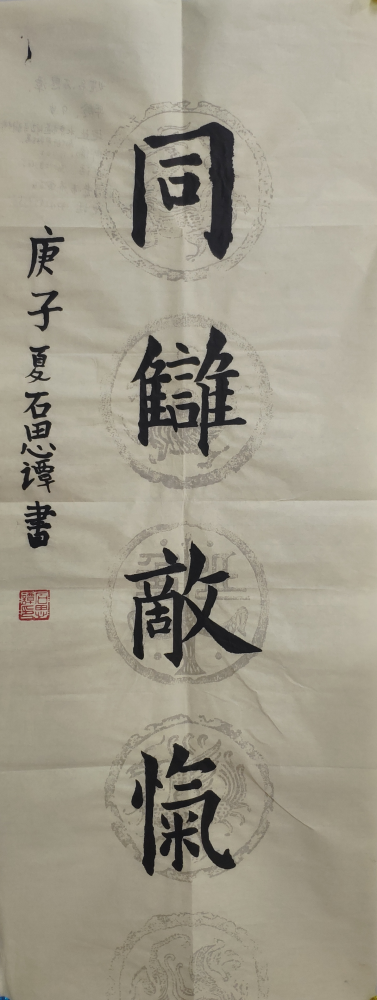 同讎敵愾
庚子夏石思谭書